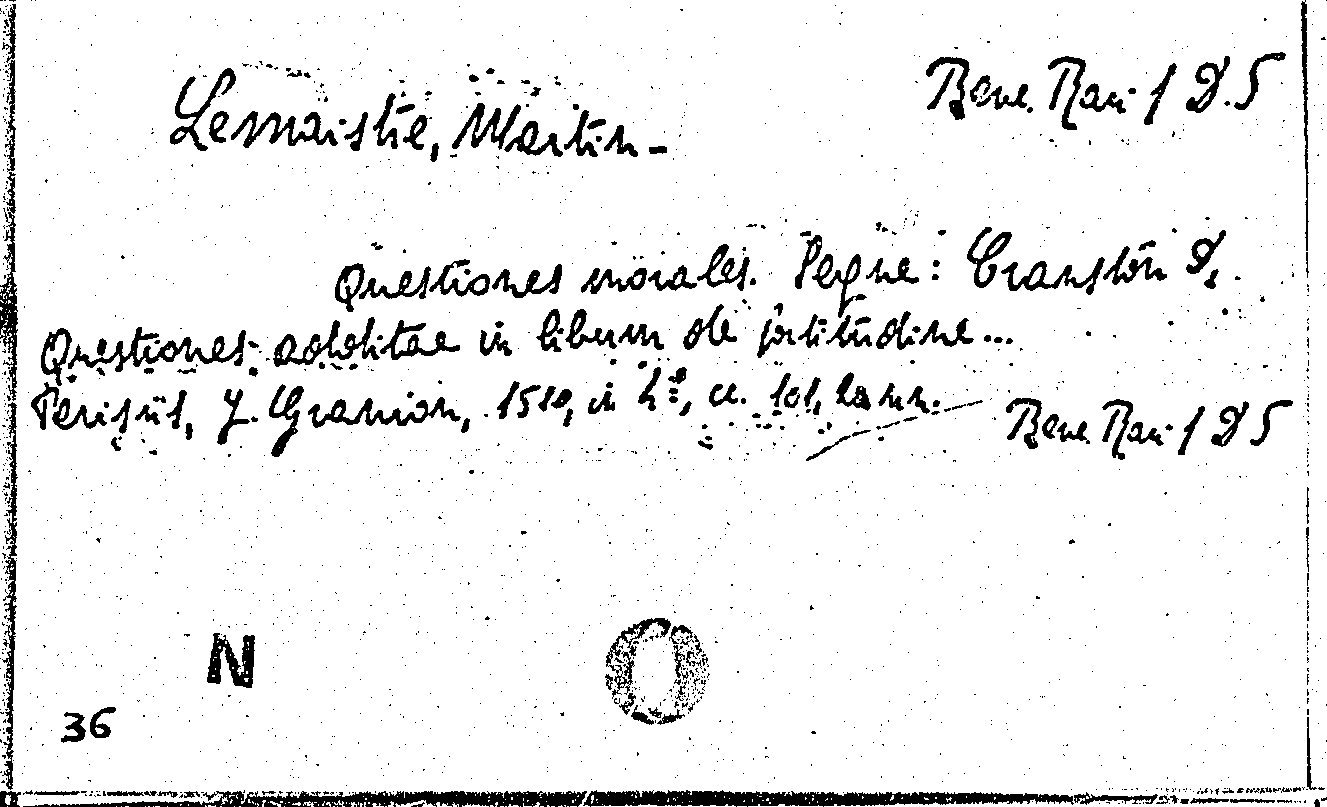 Lemaistre, Martin - Bene. Rari 1 D.5
Questiones morales. Segue: Cranston D.
Questiones additae in librum de fortitudine...
Parisiis, J. Granion, 1510, in 4°, cc. 101,
Bene Rari 1 D 5
N
36